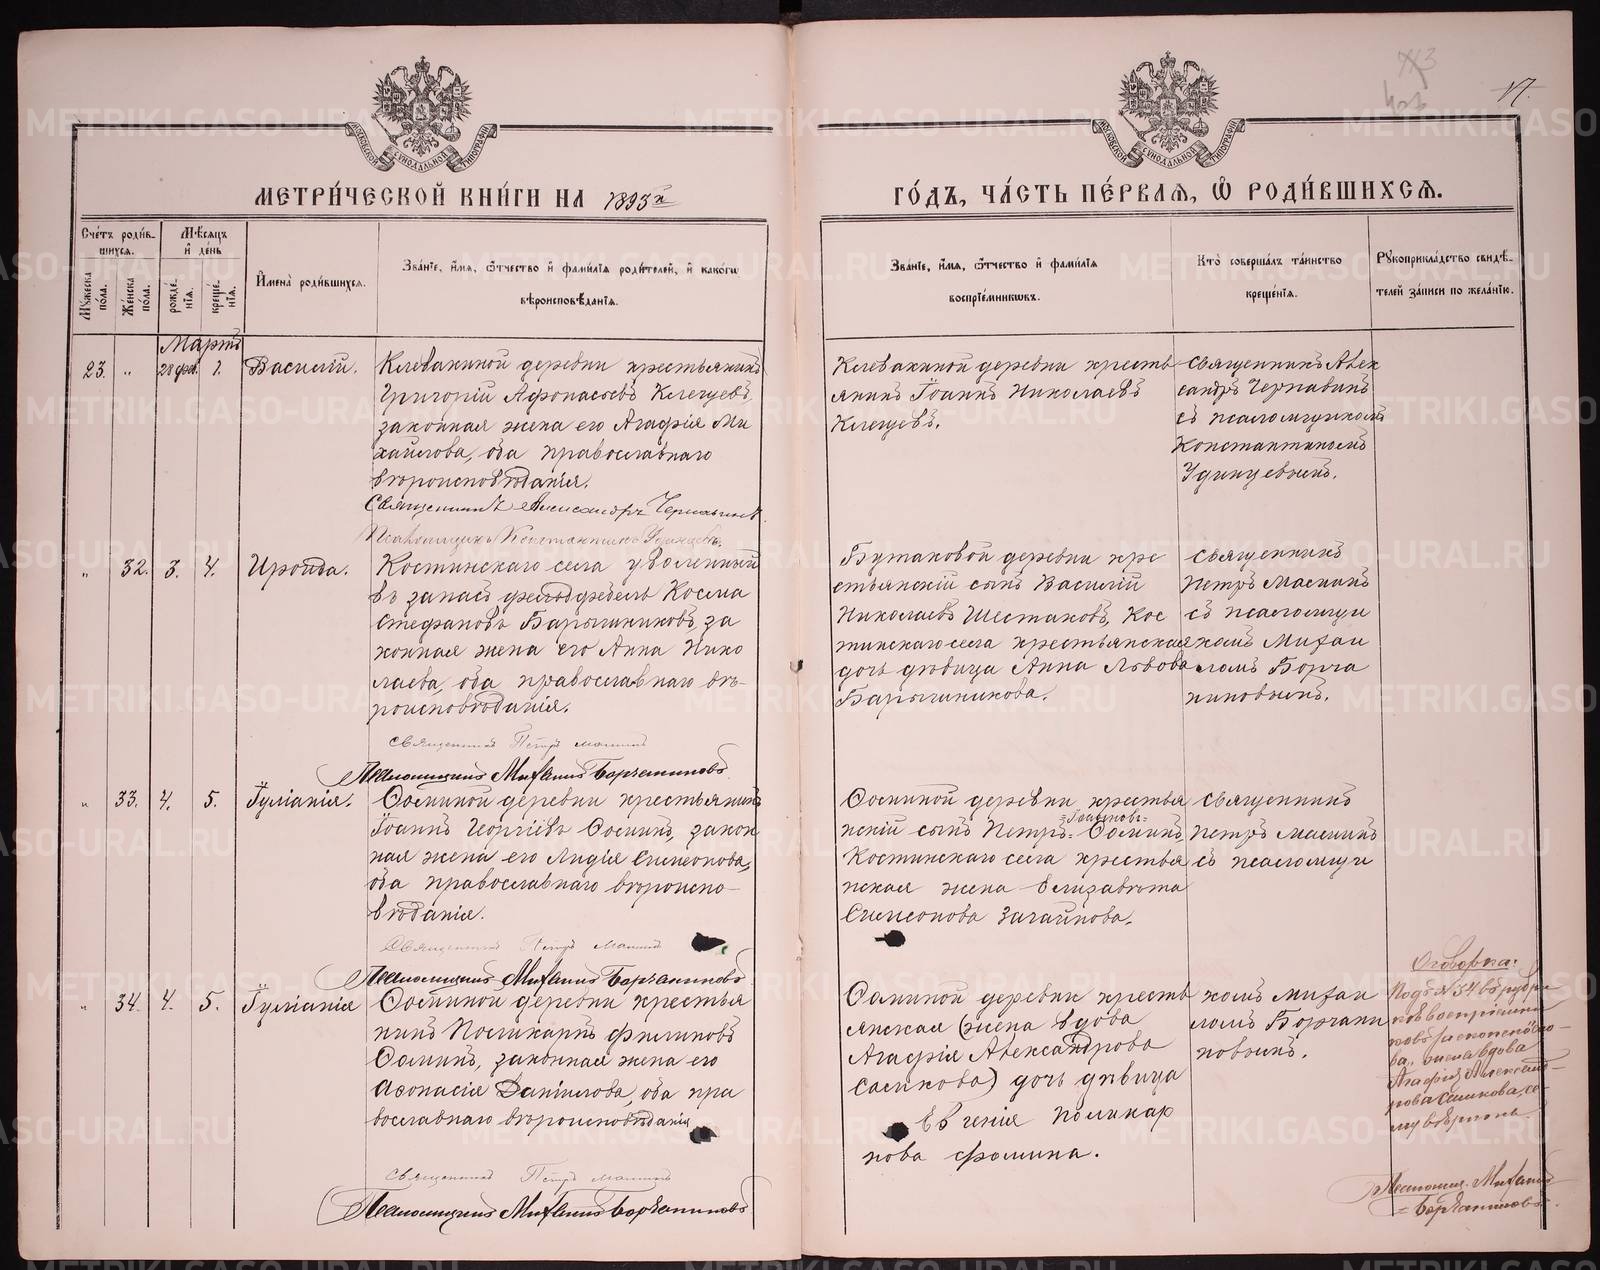 17.
МЕТРИ́ЧЕСКОЙ КНИ́ГИ НА 1893й
ГО́ДЪ, ЧА́СТЬ ПЕ́РВАѦ, Ѡ҆ РОДИ́ВШИХСѦ.
Сче́тъ роди́в-
шихсѧ.
Мꙋ́жеска по́ла.
Же́нска по́ла.
Мѣ́сѧцъ и҆ де́нь
рожде́-
нїѧ.
креще́-
нїѧ.
И҆мена̀ роди́вшихсѧ.
Зва́нїе, и҆́мѧ, ѻ҆́тчество и҆ фами́лїѧ роди́телей, и҆ како́гѡ
вѣроисповѣ́данїѧ.
Зва́нїе, и҆́мѧ, ѻ҆́тчество и҆ фами́лїѧ
воспрїе́мникѡвъ.
Кто̀ соверша́лъ та́инство
креще́нїѧ.
Рꙋкоприкла́дство свидѣ́-
телей за́писи по жела́нїю.
Мартъ
23. " 28 фев. 1. Василій.
Клевакиной деревни крестьянинъ
Григорій Афонасьевъ Клещевъ,
законная жена его Агафія Ми
хайлова, оба православнаго
вѣроисповѣданія.
Священникъ Александръ Чернавинъ
Псаломщикъ Константинъ Удинцевъ.
Клевакиной деревни кресть
янинъ Іоаннъ Николаевъ
Клещевъ.
Священникъ Алек
сандръ Чернавинъ
съ псаломщикомъ
Константиномъ
Удинцевымъ.
" 32. 3. 4. Ираида.
Костинскаго села уволенный
въ запасъ фельдфебель Косма
Стефановъ Барышниковъ, за
конная жена его Анна Нико
лаева, оба православнаго вѣ-
роисповѣданія.
Священникъ Петръ Маминъ
Псаломщикъ Михаилъ Борчаниновъ
Бутаковой деревни кре
стьянскій сынъ Василій
Николаевъ Шестаковъ, Кос
тинскаго села крестьянская
дочь дѣвица Анна Львова
Барышникова.
Священникъ
Петръ Маминъ
съ псаломщи
комъ Михаи
ломъ Борча
ниновымъ.
" 33. 4. 5. Іуліанія.
Ѳоминой деревни крестьянинъ
Іоаннъ Георгіевъ Ѳоминъ, закон
ная жена его Лидія Симеонова,
оба православнаго вѣроиспо-
вѣданія.
Священникъ Петръ Маминъ
Псаломщикъ Михаилъ Борчаниновъ
Ѳоминой деревни крестья
нскій сынъ Петръ =Іоанновъ= Ѳоминъ,
Костинскаго села крестья
нская жена Елизавета
Симеонова Загайнова.
Священникъ
Петръ Маминъ
съ псаломщи
" 34. 4. 5. Іуліанія
Ѳоминой деревни крестья
нинъ Поликарпъ Филиповъ
Ѳоминъ, законная жена его
Аѳонасія Даніилова, оба пра
вославнаго вѣроисповѣданія
Священникъ Петръ Маминъ
Псаломщикъ Михаилъ Борчаниновъ
Ѳоминой деревни кресть
янская (жена вдова
Агафія Александрова
Саликова) дочь дѣвица
Евгенія Поликар
пова Фомина.
комъ Михаи
ломъ Борчани
новымъ.
Оговорка:
Подъ № 34 въ рубри
кѣ воспріемни
ковъ
ва, жена вдова
Агафія Александ-
рова Саликова, се
му вѣрить.
Псаломщ. Михаилъ
=Борчаниновъ.